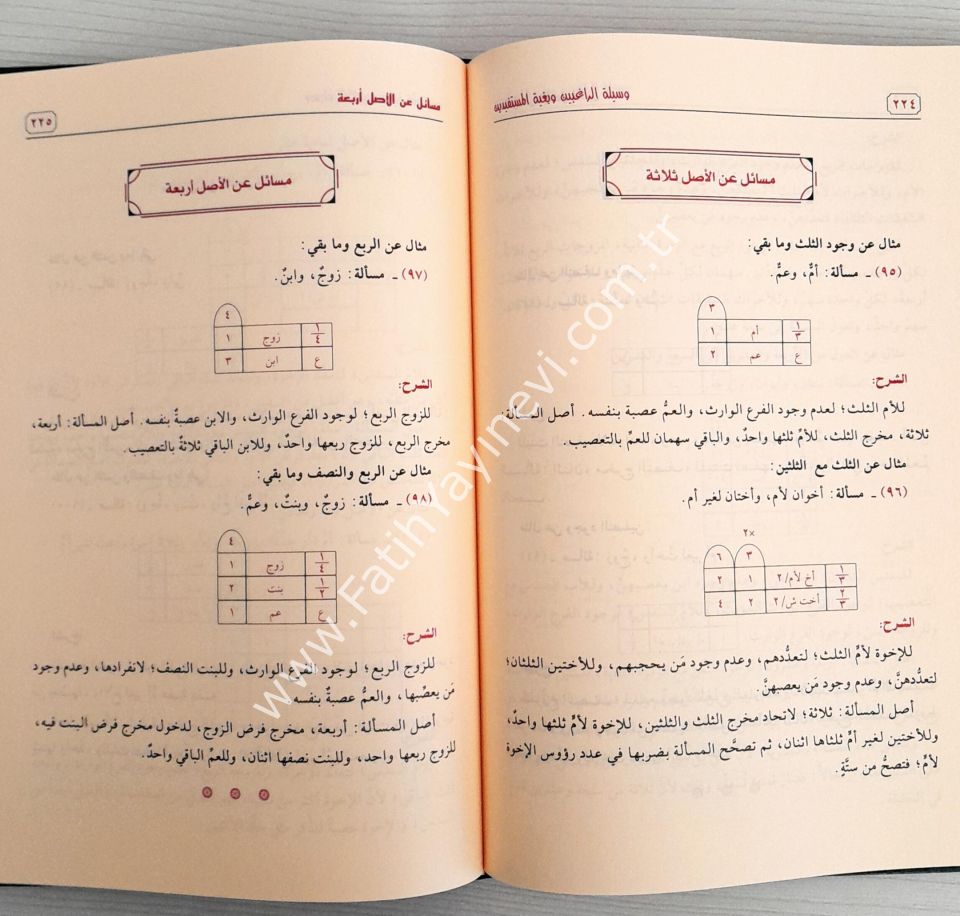 ٢٢٤
وسيلة الراغبين وبغية المستفيدين
مسائل عن الأصل ثلاثة
مثال عن وجود الثلث وما بقي:
(٩٥) ـ مسألة: أمٌّ، وعمٌّ.
٣
١/٣ أم ١
ع عم ٢
الشرح:
للأم الثلث؛ لعدم وجود الفرع الوارث، والعمُّ عصبة بنفسه. أصل المسألة:
ثلاثة، مخرج الثلث، للأمِّ ثلثها واحدٌ، والباقي سهمان للعمِّ بالتعصيب.
مثال عن الثلث مع الثلثين:
(٩٦) ـ مسألة: أخوان لأم، وأختان لغير أم.
×٢
٣ ٦
١/٣ أخ لأم/٢ ١ ٢
٢/٣ أخت ش/٢ ٢ ٤
الشرح:
للإخوة لأمٍّ الثلث؛ لتعدُّدهم، وعدم وجود مَن يحجبهم، وللأختين الثلثان؛
لتعدُّدهنَّ، وعدم وجود مَن يعصبهنَّ.
أصل المسألة: ثلاثة؛ لاتحاد مخرج الثلث والثلثين، للإخوة لأمٍّ ثلثها واحدٌ،
وللأختين لغير أمٍّ ثلثاها اثنان، ثم تصحَّح المسألة بضربها في عدد رؤوس الإخوة
لأمٍّ؛ فتصحُّ من ستَّةٍ.
مسائل عن الأصل أربعة
٢٢٥
مسائل عن الأصل أربعة
مثال عن الربع وما بقي:
(٩٧) ـ مسألة: زوجٌ، وابنٌ.
٤
١/٤ زوج ١
ع ابن ٣
الشرح:
للزوج الربع؛ لوجود الفرع الوارث، والابن عصبةٌ بنفسه. أصل المسألة: أربعة،
مخرج الربع، للزوج ربعها واحدٌ، وللابن الباقي ثلاثةٌ بالتعصيب.
مثال عن الربع والنصف وما بقي:
(٩٨) ـ مسألة: زوجٌ، وبنتٌ، وعمٌّ.
٤
١/٤ زوج ١
١/٢ بنت ٢
ع عم ١
الشرح:
للزوج الربع؛ لوجود الفرع الوارث، وللبنت النصف؛ لانفرادها، وعدم وجود
مَن يعصِّبها، والعمُّ عصبةٌ بنفسه.
أصل المسألة: أربعة، مخرج فرض الزوج، لدخول مخرج فرض البنت فيه،
للزوج ربعها واحد، وللبنت نصفها اثنان، وللعمِّ الباقي واحدٌ.
www.FatihYayinevi.com.tr